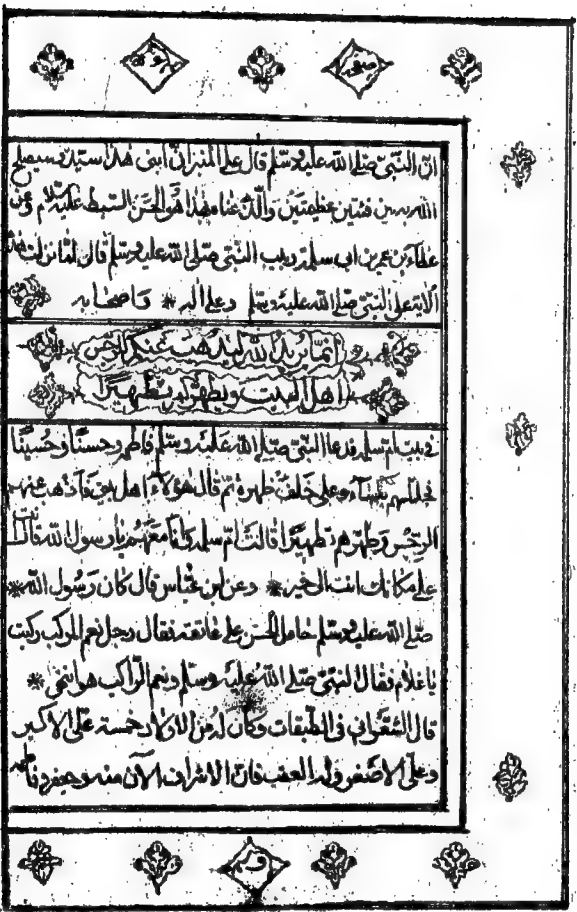 ان النبى صلى الله عليه وسلم قال على المنبر ان ابنى هذا سيد وسيصلح
الله به بين فئتين عظيمتين والله عنا هذا هو الحسن السبط عليه السلام وعن
عطاء بن عمر بن ابى سلمة ربيب النبى صلى الله عليه وسلم قال لما نزلت هذه
الاية على النبى صلى الله عليه وسلم وعلى اله * واصحابه
انما يريد الله ليذهب عنكم الرجس
اهل البيت ويطهركم تطهيرًا
فى بيت ام سلمة فدعا النبى صلى الله عليه وسلم فاطمة وحسنًا وحسينًا
فجللهم بكساء وعلى خلف ظهره ثم قال هؤلاء اهل بيتى فاذهب عنهم
الرجس وطهرهم تطهيرًا قالت ام سلمة وانا معهم يا رسول الله قال انت
على مكانك انت الى خير * وعن ابن عباس قال كان رسول الله *
صلى الله عليه وسلم حامل الحسن على عاتقه فقال رجل نعم المركب ركبت
يا غلام فقال النبى صلى الله عليه وسلم ونعم الراكب هو انتهى *
قال الشعرانى فى الطبقات وكان له من الاولاد خمسة على الاكبر
وعلى الاصغر وله العقب فان الاشراف الآن منه وجعفر وفاطمة